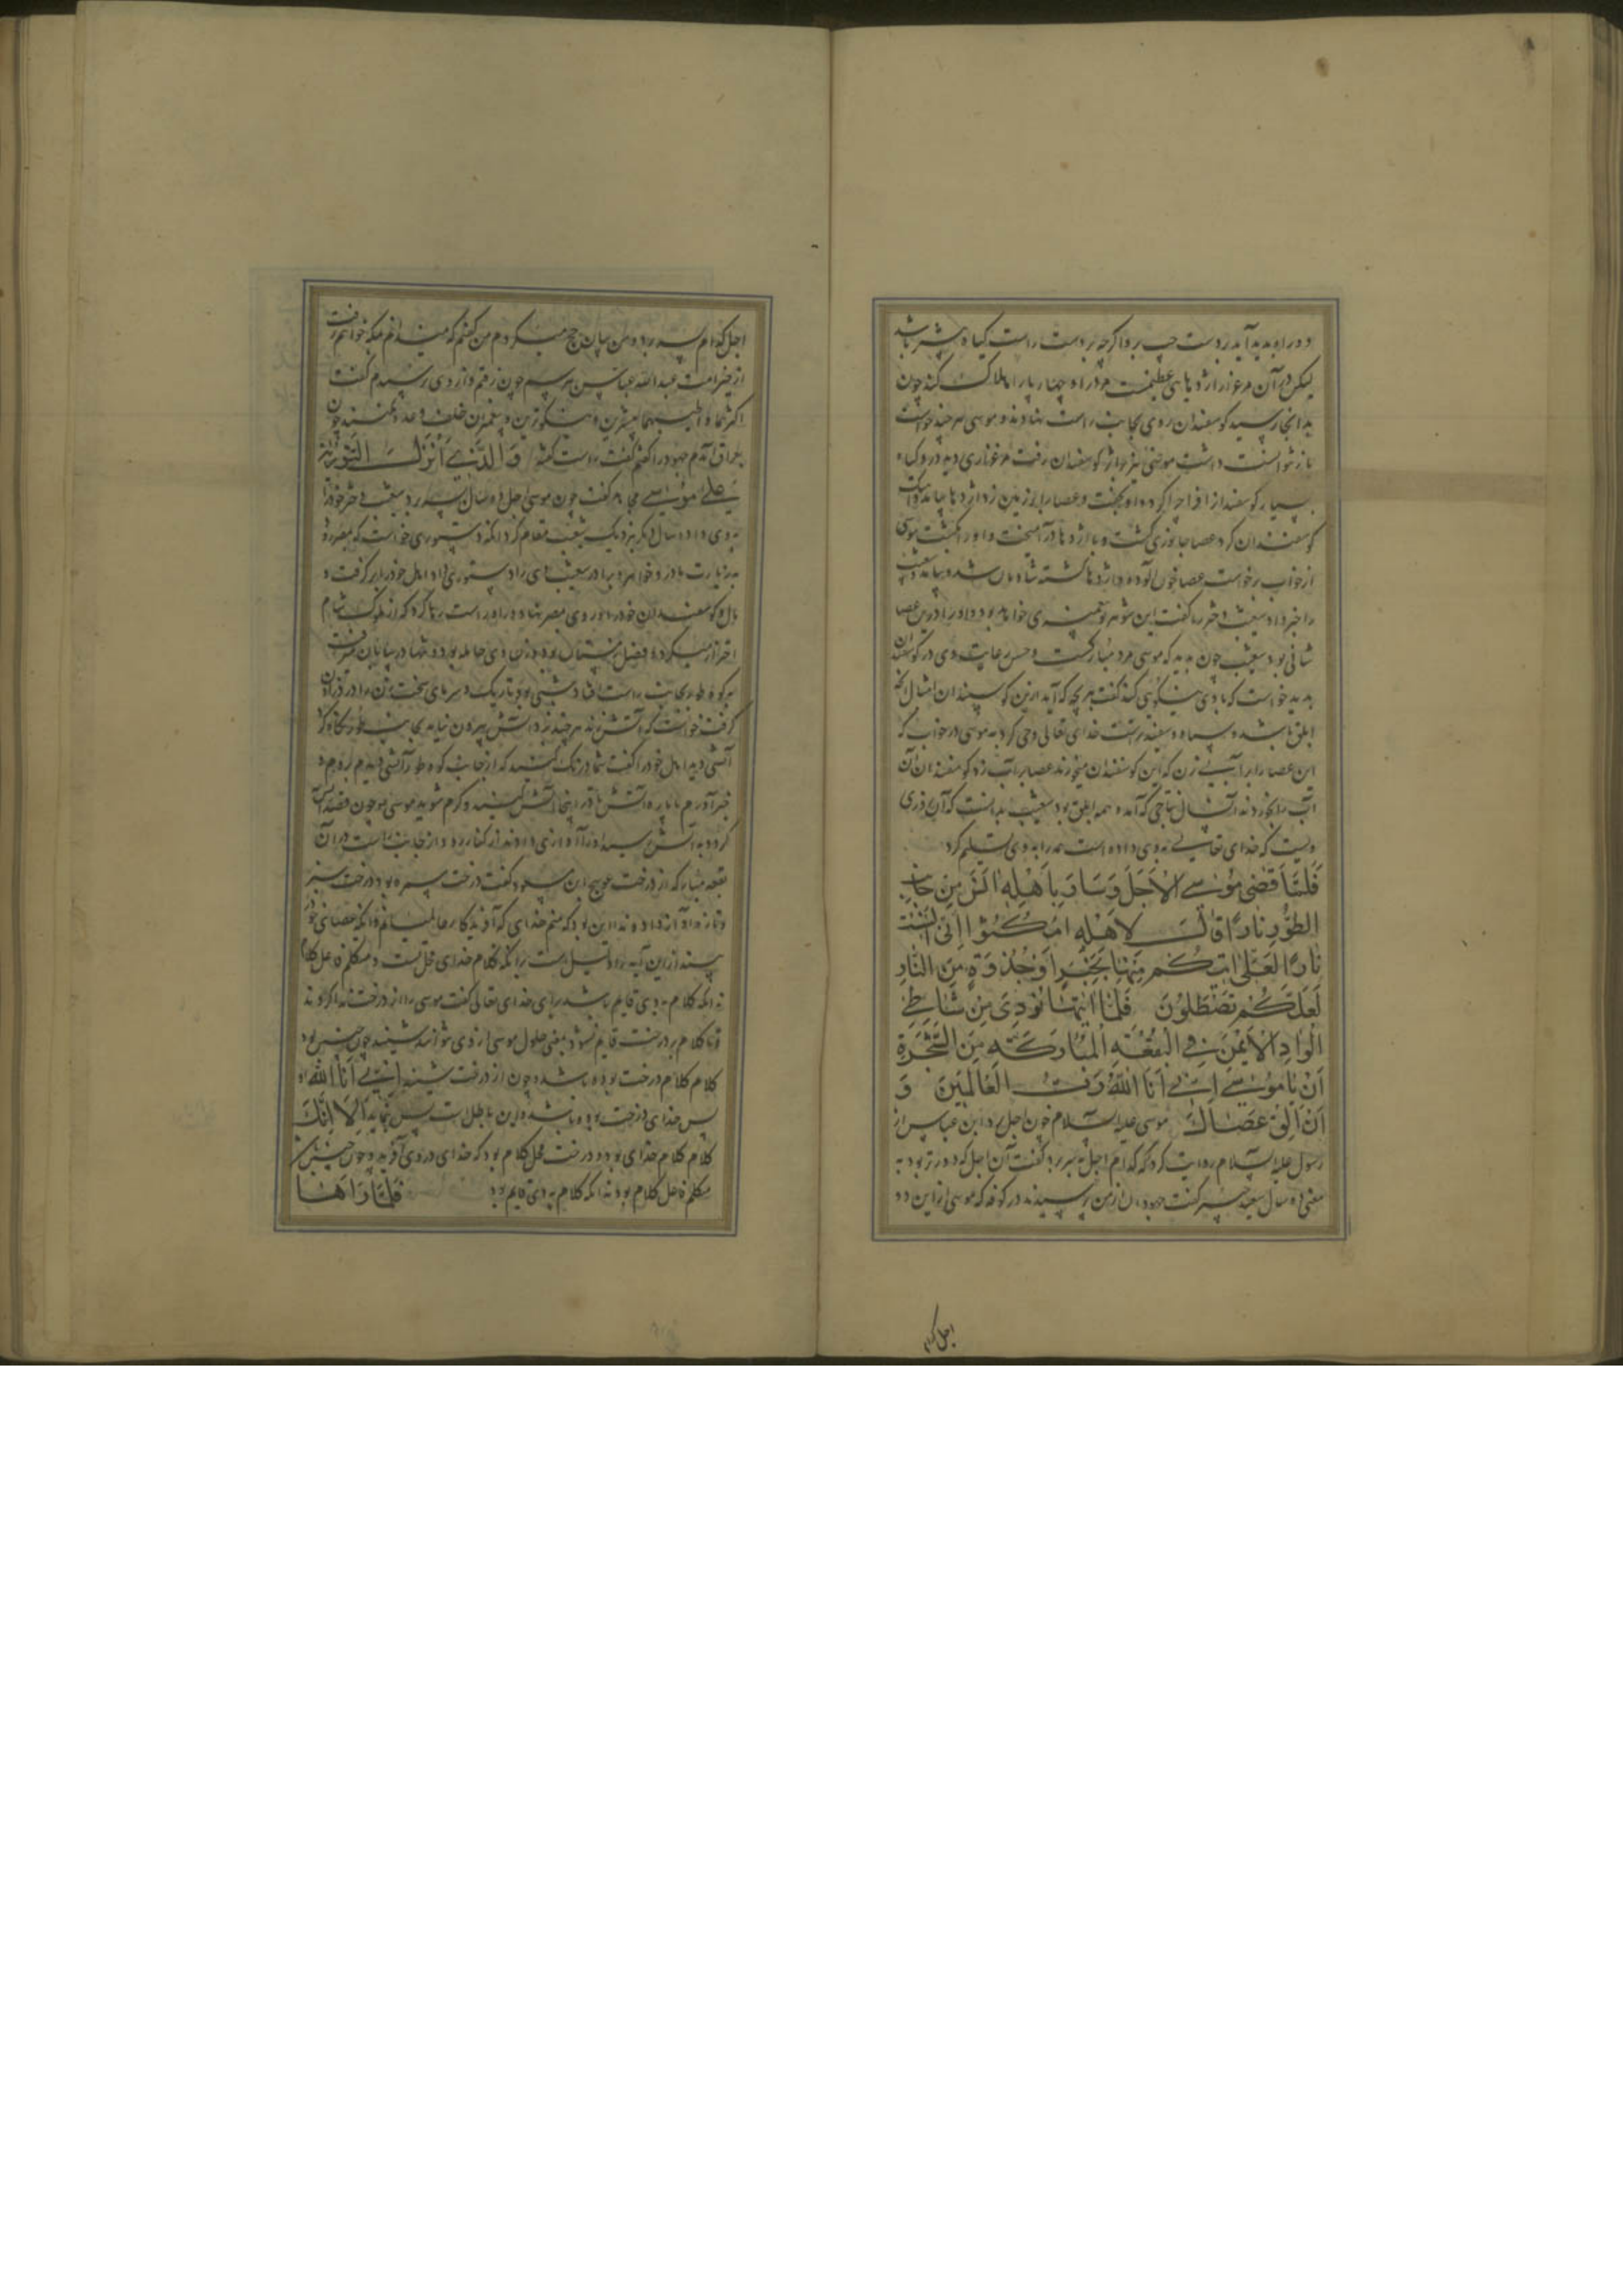 دو راه پدید آید بر دست چپ برو اگرچه بر دست راست گیاه بیشتر باشد
لیکن در آن مرغزار اژدهای عظیمست مرد را و چهارپا را هلاک کند چون
بدانجا رسید گوسفندان روی بجانب راست نهادند و موسی هرچند خواست
باز نتوانست داشت موسی نیز بر اثر گوسفندان برفت مرغزاری دید در و گیاه
بسیار گوسفند از افرا چرا کرد و او بخفت و عصا را بر زمین زد اژدها بیامد و
گوسفندان کرد عصا جانوری گشت و با اژدها درآمیخت و او را بکشت موسی
از خواب برخواست عصا خون آلوده و اژدها کشته شادمان شد و بیامد و شعیب
را خبر داد شعیب دختر را گفت این شوهر تو پیغمبری خواهد بود و او را در این عصا
شانی بود شعیب چون بدید که موسی مرد مبارکست و حسن رعایت وی در گوسفندان
بدید خواست که با وی نیکویی کند گفت هر بچه که آید ازین گوسپندان امثال آنچه
ابلق باشد و سیاه و سفید تراست خدای تعالی وحی کرد به موسی در خواب که
این عصا را بر آب زن که این گوسفندان میخورند عصا بر آب زد گوسفندان آن
آب را بخوردند آن سال نتاجی که آمد همه ابلق بود شعیب بدانست که آن روزی
ویست که خدای تعالی به وی داده است همه را به وی تسلیم کرد
فَلَمَّا قَضَىٰ مُوسَى الْأَجَلَ وَسَارَ بِأَهْلِهِ آنَسَ مِن جَانِبِ
الطُّورِ نَارًا قَالَ لِأَهْلِهِ امْكُثُوا إِنِّي آنَسْتُ
نَارًا لَعَلِّي آتِيكُم مِنْهَا بِخَبَرٍ أَوْ جُذْوَةٍ مِنَ النَّارِ
لَعَلَّكُمْ تَصْطَلُونَ فَلَمَّا أَتَاهَا نُودِيَ مِن شَاطِئِ
الْوَادِ الْأَيْمَنِ فِي الْبُقْعَةِ الْمُبَارَكَةِ مِنَ الشَّجَرَةِ
أَنْ يَا مُوسَىٰ إِنِّي أَنَا اللَّهُ رَبُّ الْعَالَمِينَ وَ
أَنْ أَلْقِ عَصَاكَ موسی علیه السلام چون اجل ابن عباس از
رسول علیه السلام روایت کرد که کدام اجل به سر برد گفت آن اجل که دورتر بود به
معنی ده سال سعید جبیر گفت جهودان از من پرسیدند در کوفه که موسی از این دو
اجل کدام
اجل کدام بسر برد و من بسازن حج میکردم من گفتم که نمیدانم مکه خواهم رفت
از خیر امت عبدالله عباس بپرسم چون برفتم و از وی پرسیدم گفت
اکثرهما و اطیبهما بیشترین و نیکوترین و پیغمبران خلف وعده نکنند چون
بعراق آمدم جهود را گفتم گفت راست گفته وَالَّذِي أَنْزَلَ التَّوْرَاةَ
عَلَىٰ مُوسَىٰ مجاهد گفت چون موسی اجل ده سال بسر برد شعیب دختر خود را
به وی داد ده سال دیگر نزدیک شعیب مقام کرد آنگه دستوری خواست که بمصر رود
به زیارت مادر و خواهر و برادر شعیب وی را دستوری داد اهل خود را برگرفت و
مال و گوسفندان خود را و روی بمصر نهاد و راه راست رها کرد که از ملوک شام
احتراز میکرد و فصل زمستان بود و زن وی حامله بود و تنها در بیابان میرفت
به کوه طور بجانب راست افتاد شبی بود تاریک و سرمای سخت و زن را درد زادن
گرفت خواست که آتش زند هرچند زد آتش بیرون نیامد بجانب طور نگاه کرد
آتشی دید اهل خود را گفت شما درنگ کنید که از جانب کوه طور آتشی دیدم بروم و
خبر آورم یا پاره آتش تا در اینجا آتش کنید و گرم شوید موسی چون قصد آتش
کرد و به آتش رسید او را آوازی دادند از کنار رود از جانب راست در آن
بقعه مبارکه از درخت عوسج ابن مسعود گفت درخت سمره بود درخت سبز
و تازه و آواز داد و ندا این بود که منم خدای که آفریدگار عالمیانم و آنکه عصای خود
بیفکن از این آیه دلیل است بر آنکه کلام خدای محل است و متکلم فاعل کلام
نه آنکه کلام به وی قایم باشد برای خدای تعالی گفت موسی را از درخت ندا کردند
و تا کلام بر درخت قایم نشود یعنی حلول موسی از وی نتواند شنید چون چنین بود
کلام کلام درخت بوده باشد و چون از درخت شنید إِنِّي أَنَا اللَّهُ
پس خدای درخت بوده باشد و این باطل است پس نماند الا آنک
کلام کلام خدای بود و درخت محل کلام بود که خدای در وی آفرید و چون چنین باشد
متکلم فاعل کلام بود نه آنکه کلام به وی قایم بود فَلَمَّا رَآهَا